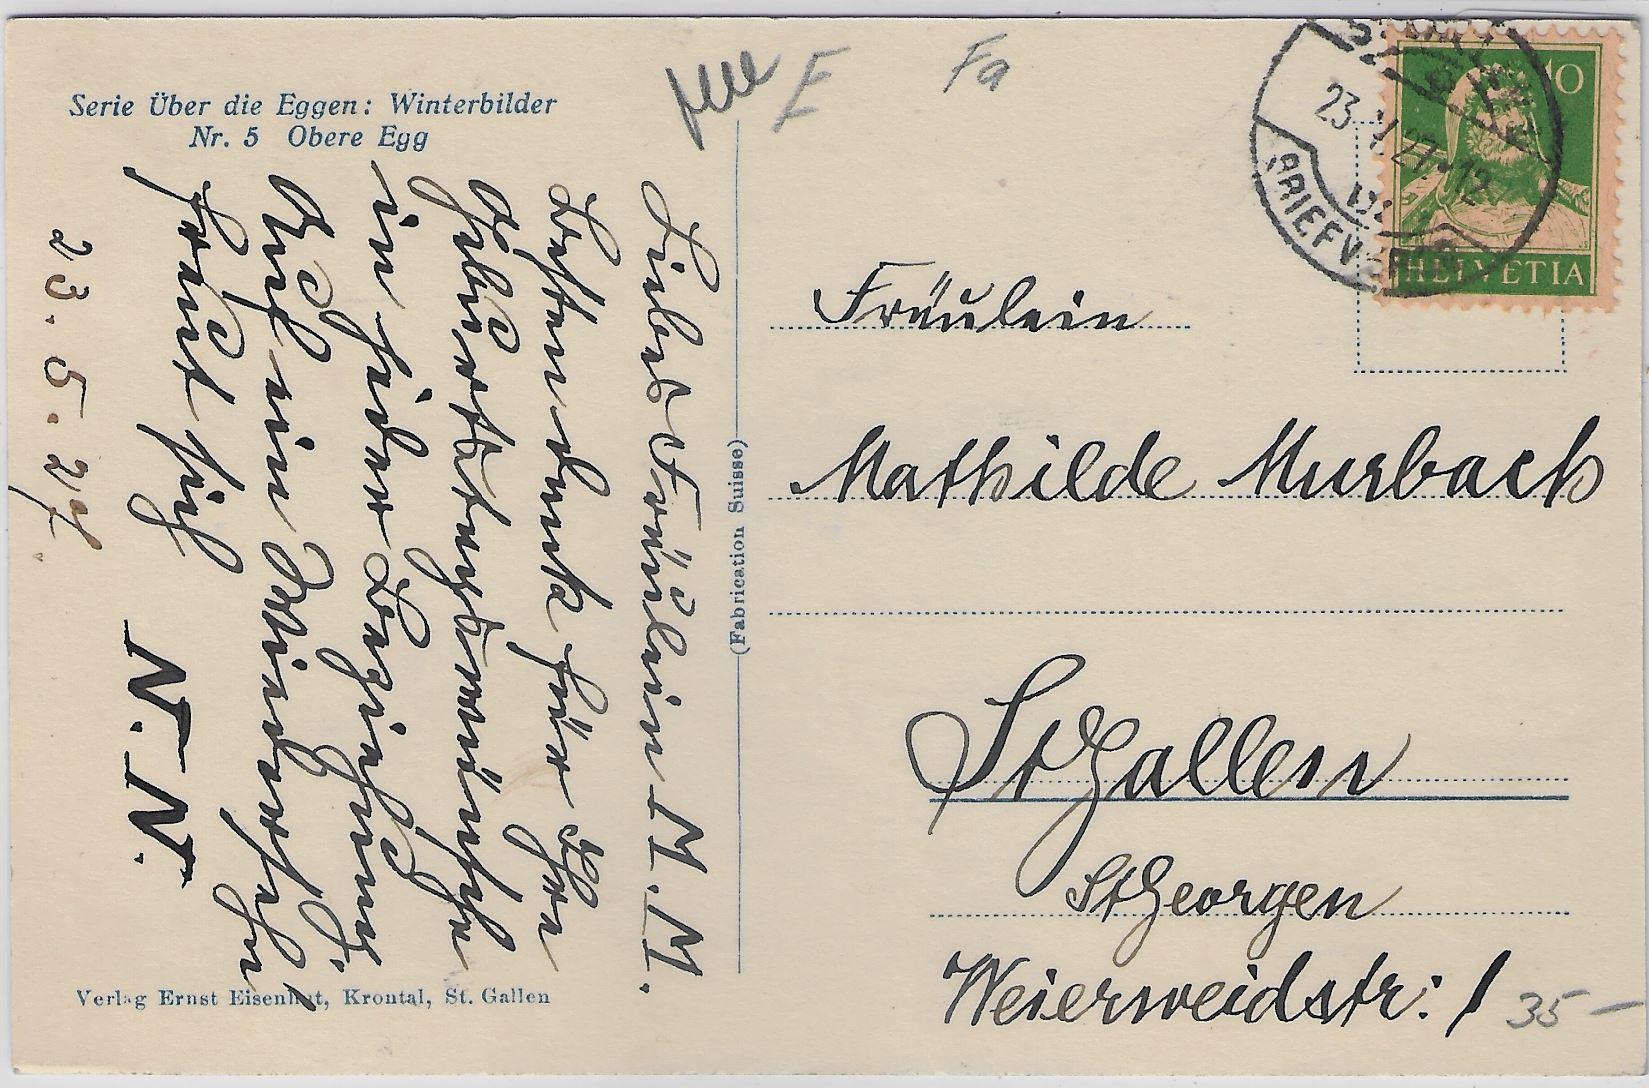 Serie Über die Eggen: Winterbilder
Nr. 5 Obere Egg
Liebes Fräulein M. M.
Besten Dank für Ihre
Geburtstagswünsche
in jeder Beziehung.
Auf ein Wiedersehen
freut sich
N. N.
23. 5. 27.
Verlag Ernst Eisenhut, Krontal, St. Gallen
(Fabrication Suisse)
E
Fa
23. V. 27.-12
BRIEFV
10
HELVETIA
Fräulein
Mathilde Murbach
St Gallen
St Georgen
Weierweidstr: 1
35 –